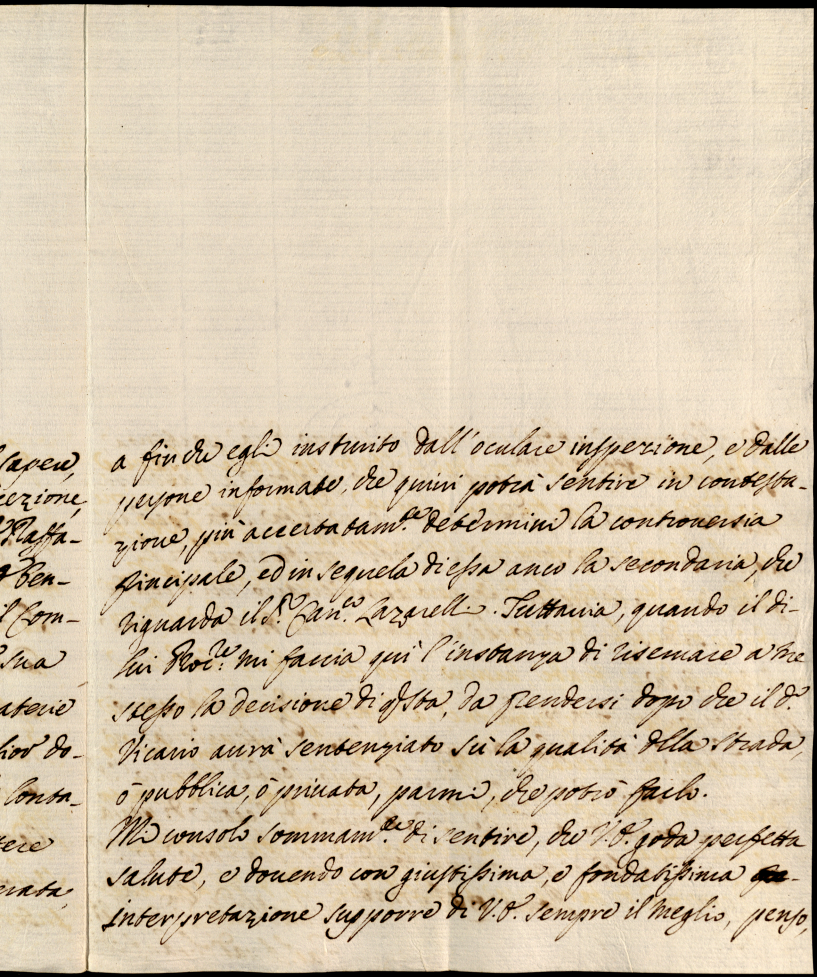 sapere,
cezione,
Raffa-
Ben-
il Com-
sua
aterie
lior do-
Conta-
tere
erata,
a finche egli instruito dall'oculare inspezione, e dalle
persone informate, che quivi potrà sentire in contesta-
zione, più accertatam.te determini la controversia
principale, ed in sequela di essa anco la secondaria, che
riguarda il S.r Can.co Lazarelli. Tuttavia, quando il di-
lui Proc.re mi faccia qui l'instanza di riservare a me
stesso la decisione di q.sta, da prendersi dopo che il d.o
Vicario avrà sentenziato sù la qualità della strada,
ò pubblica, ò privata, parmi, che potrò farlo.
Mi consolo sommam.te di sentire, che V.S. goda perfetta
salute, e dovendo con giustissima, e fondatissima
interpretazione supporre di V.S. sempre il meglio, penso,